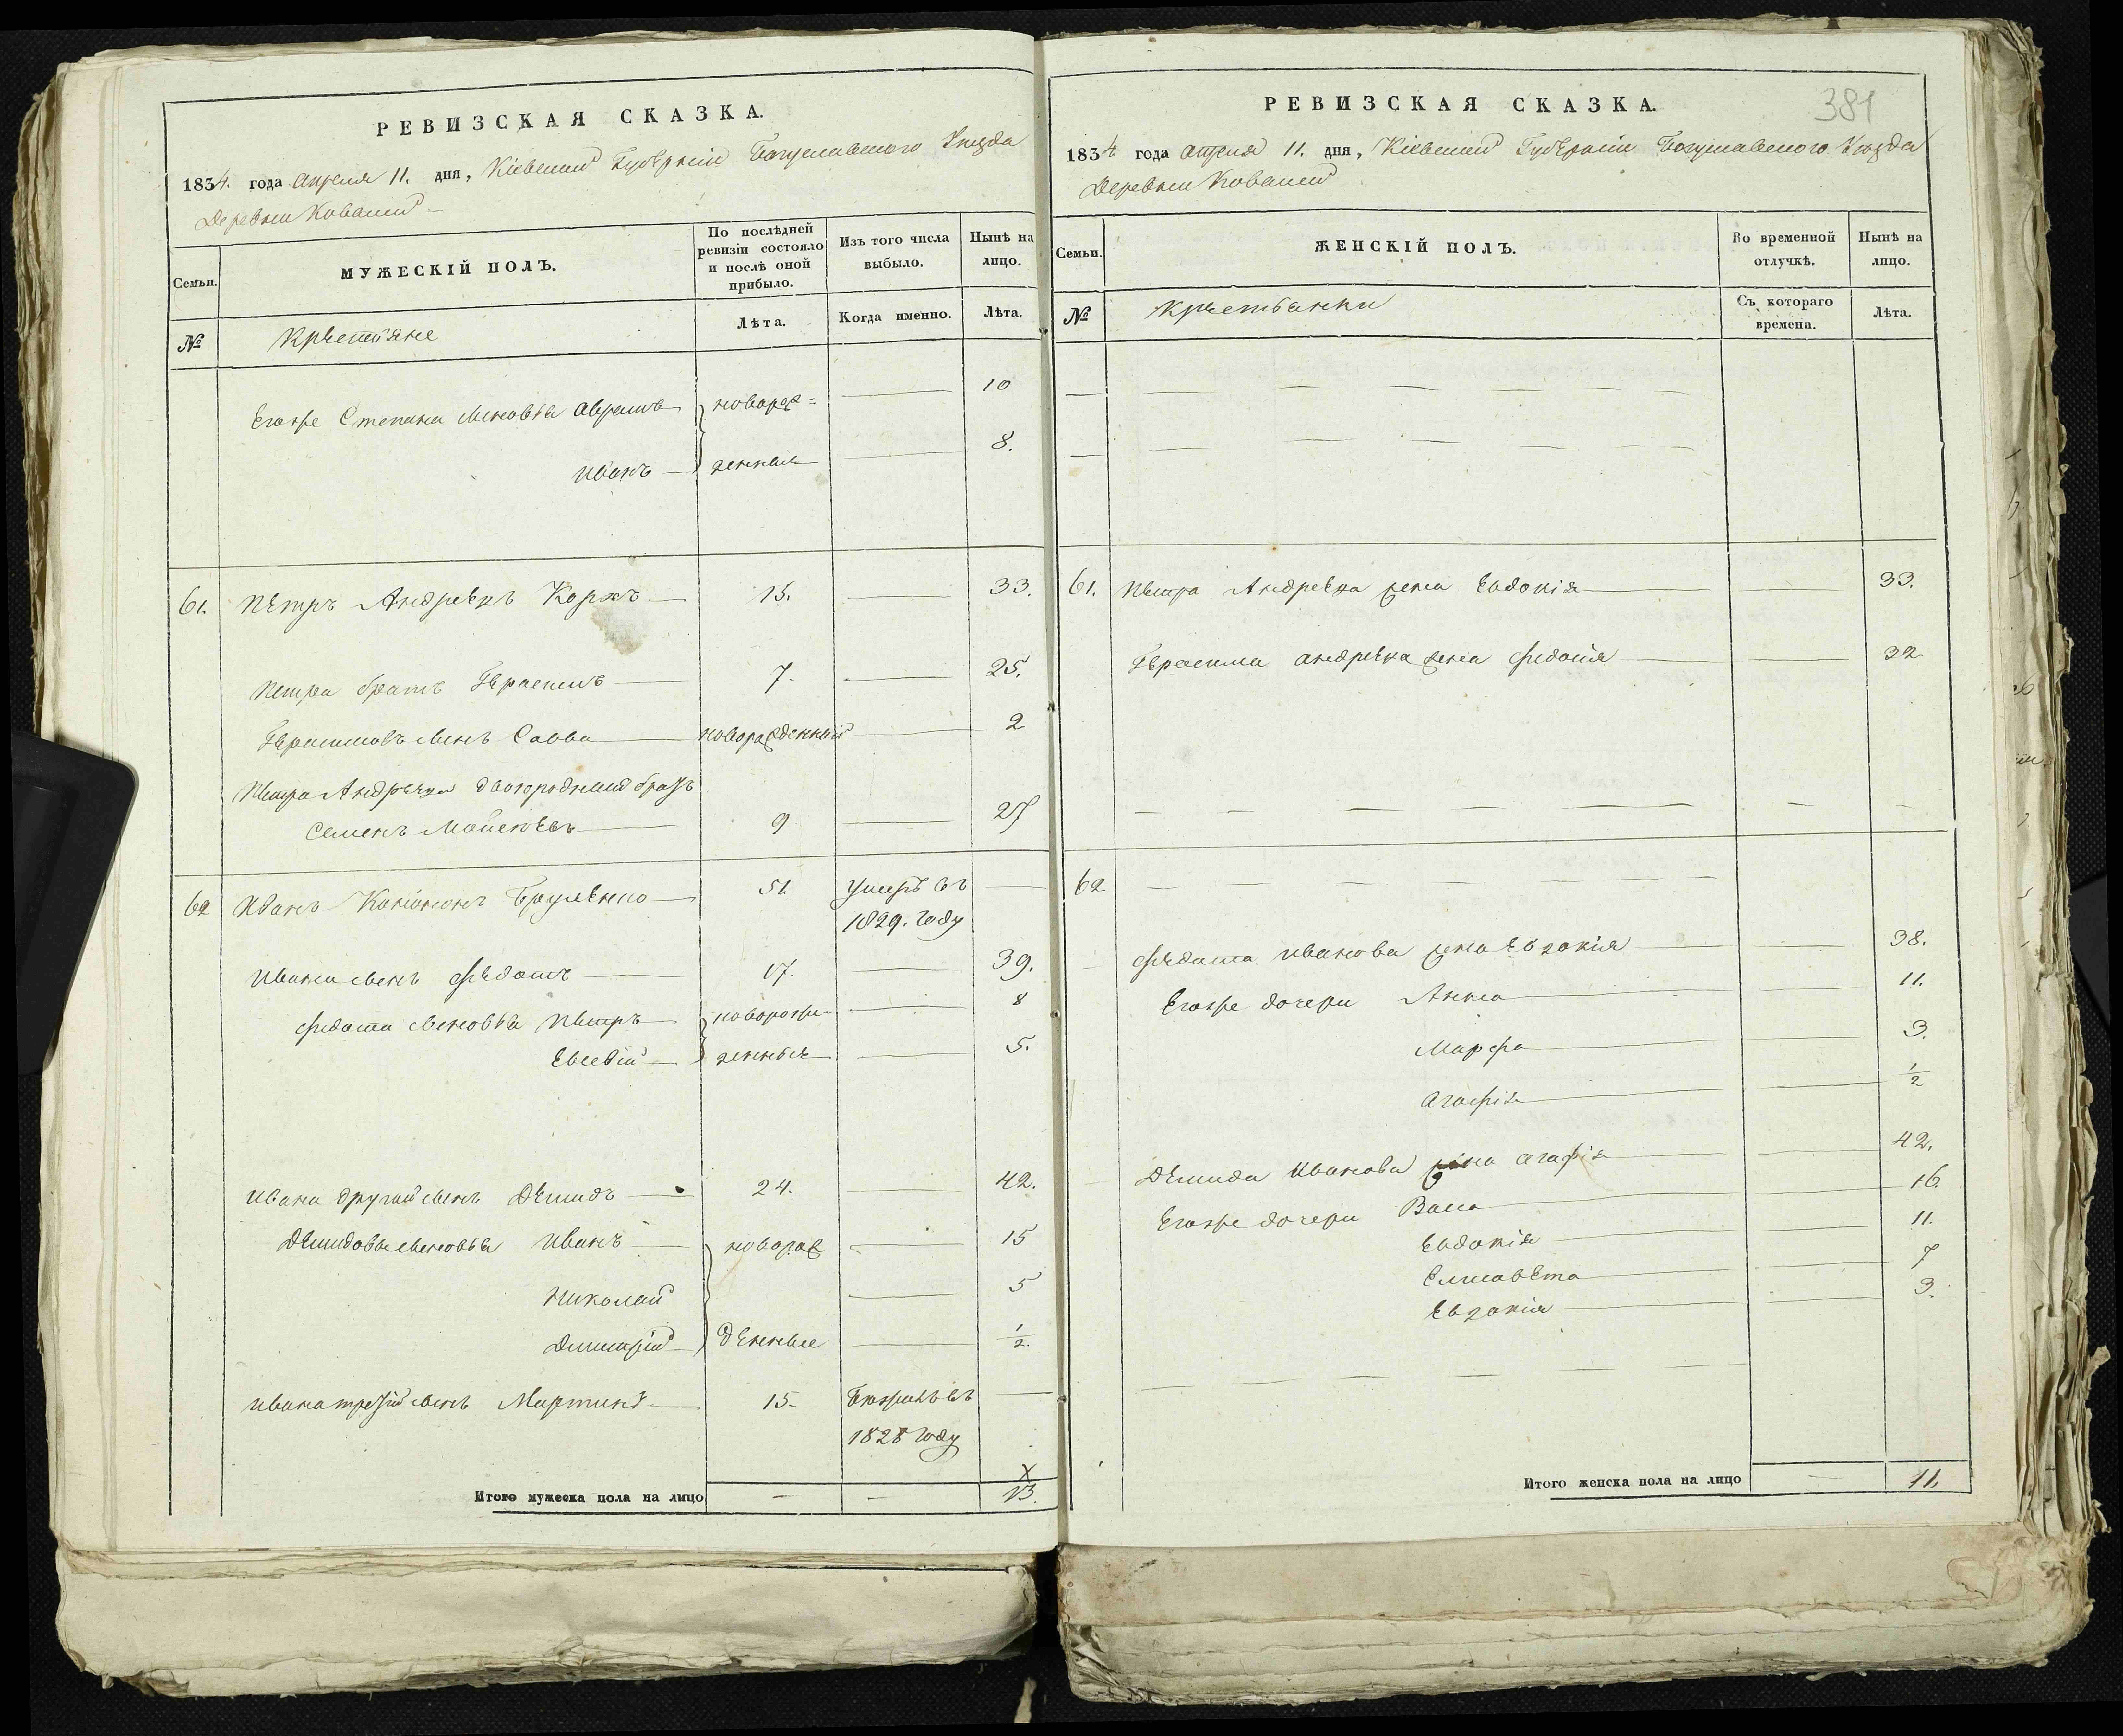 РЕВИЗСКАЯ СКАЗКА.
1834. года апреля 11. дня, Кіевской Губерніи Богуславского Уезда
Деревни Ковалей
Семьи. МУЖЕСКІЙ ПОЛЪ. По послѣдней ревизіи состояло и послѣ оной прибыло. Изъ того числа выбыло. Нынѣ на лицо.
№ Крестьяне Лѣта. Когда именно. Лѣта.
Егоже Степана сыновья Аврамъ новорож= 10
Иванъ денныя 8.
61. Петръ Андреевъ Коржъ 15. 33.
Петра братъ Герасимъ 7. 25.
Герасимовъ сынъ Савва новорожденный 2
Петра Андреева двоюродный братъ
Семенъ Мойсеевъ 9 27
62 Иванъ Кононовъ 51. умеръ въ
1829. году
Ивана сынъ Федотъ 17. 39.
Федота сыновья Петръ новорож- 8
Евсевій денныя 5.
Ивана другий сынъ Демидъ 24. 42.
Демидовы сыновья Иванъ новорож 15
Николай 5
Димитрій денные 1/2.
Ивана третій сынъ Мартинъ 15. Бежалъ въ
1828 году
Итого мужеска пола на лицо 13.
381
РЕВИЗСКАЯ СКАЗКА.
1834 года апреля 11. дня, Кіевской Губерніи Богуславского Уезда
Деревни Ковалей
Семьи. ЖЕНСКІЙ ПОЛЪ. Во временной отлучкѣ. Нынѣ на лицо.
№ Крестьянки Съ котораго времени. Лѣта.
61. Петра Андреева жена Евдокія 33.
Герасима Андреева жена Федосія 32
62.
Федота Иванова жена Евдокія 38.
Егоже дочери Анна 11.
Марфа 3.
Агафія 1/2
Демида Иванова жена Агафія 42.
Егоже дочери Васса 16.
Евдокія 11.
Елисавета 7
Евдокія 3.
Итого женска пола на лицо 11.